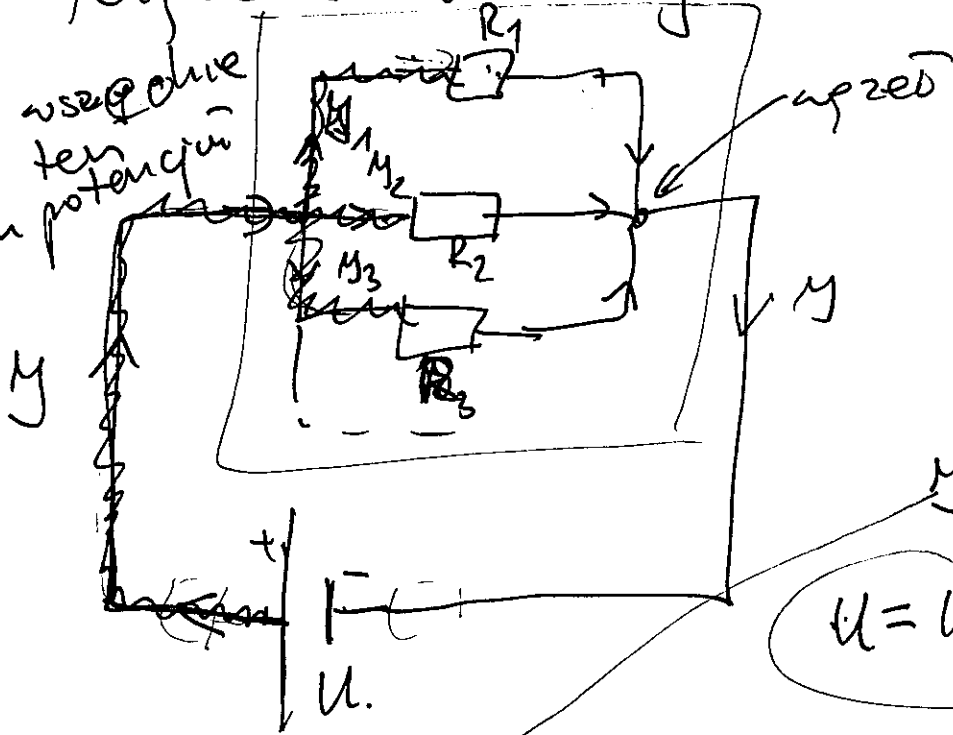 R1
wszędzie
ten
potencjał
węzeł
y1
y2
R2
y3
R3
y
y
+
-
U.
U =